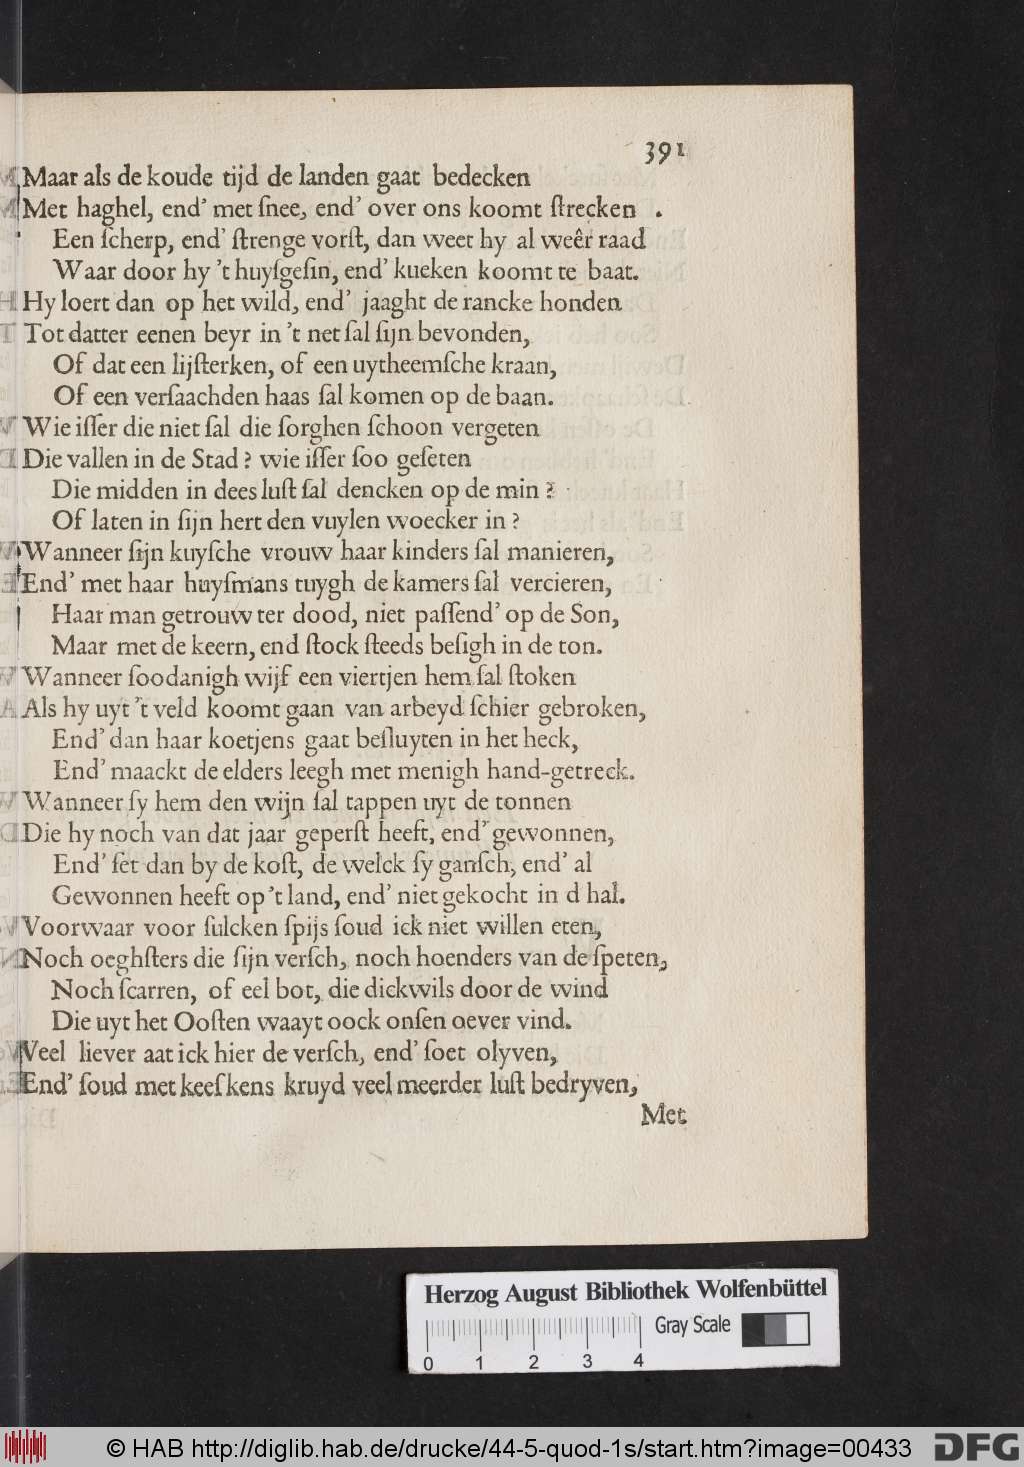 391
Maar als de koude tijd de landen gaat bedecken
Met haghel, end' met ſnee, end' over ons koomt ſtrecken .
Een ſcherp, end' ſtrenge vorſt, dan weet hy al weêr raad
Waar door hy 't huyſgeſin, end' kueken koomt te baat.
Hy loert dan op het wild, end' jaaght de rancke honden
Tot datter eenen beyr in 't net ſal ſijn bevonden,
Of dat een lijſterken, of een uytheemſche kraan,
Of een verſaachden haas ſal komen op de baan.
Wie iſſer die niet ſal die ſorghen ſchoon vergeten
Die vallen in de Stad ? wie iſſer ſoo geſeten
Die midden in dees luſt ſal dencken op de min ?
Of laten in ſijn hert den vuylen woecker in ?
Wanneer ſijn kuyſche vrouw haar kinders ſal manieren,
End' met haar huyſmans tuygh de kamers ſal vercieren,
Haar man getrouw ter dood, niet paſſend' op de Son,
Maar met de keern, end ſtock ſteeds beſigh in de ton.
Wanneer ſoodanigh wijf een viertjen hem ſal ſtoken
Als hy uyt 't veld koomt gaan van arbeyd ſchier gebroken,
End' dan haar koetjens gaat beſluyten in het heck,
End' maackt de elders leegh met menigh hand-getreck.
Wanneer ſy hem den wijn ſal tappen uyt de tonnen
Die hy noch van dat jaar geperſt heeft, end' gewonnen,
End' ſet dan by de koſt, de welck ſy ganſch, end' al
Gewonnen heeft op 't land, end' niet gekocht in d hal.
Voorwaar voor ſulcken ſpijs ſoud ick niet willen eten,
Noch oeghſters die ſijn verſch, noch hoenders van de ſpeten,
Noch ſcarren, of eel bot, die dickwils door de wind
Die uyt het Ooſten waayt oock onſen oever vind.
Veel liever aat ick hier de verſch, end' ſoet olyven,
End' ſoud met keeſkens kruyd veel meerder luſt bedryven,
Met
Herzog August Bibliothek Wolfenbüttel
Gray Scale
0 1 2 3 4
© HAB http://diglib.hab.de/drucke/44-5-quod-1s/start.htm?image=00433
DFG